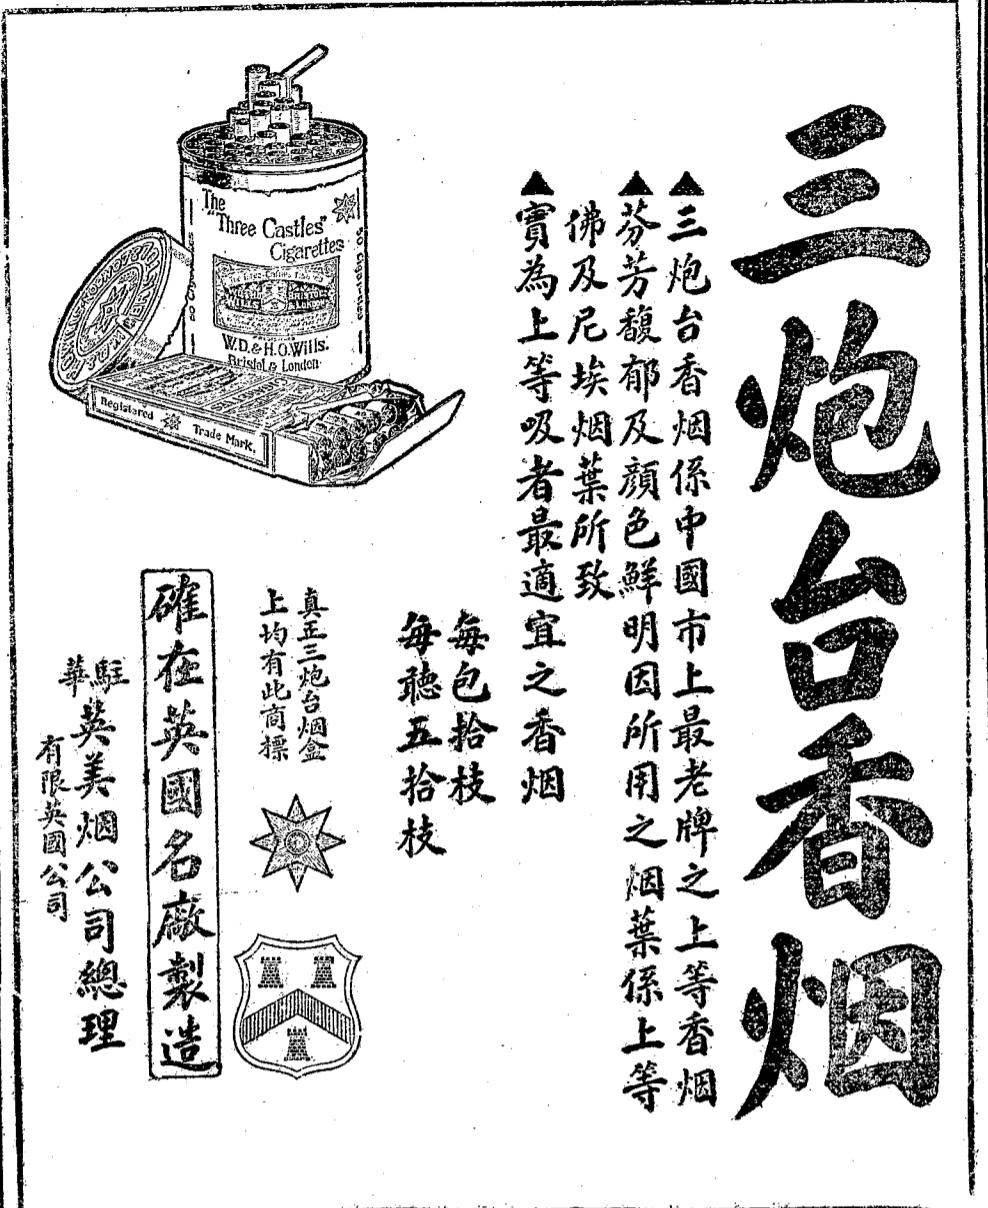 三炮台香烟
▲三炮台香烟係中國市上最老牌之上等香烟
▲芬芳馥郁及顏色鮮明因所用之烟葉係上等
佛及尼埃烟葉所致
▲實為上等吸者最適宜之香烟
每包拾枝
每聽五拾枝
真正三炮台烟盒
上均有此商標
確在英國名廠製造
駐華英美烟公司總理
有限英國公司
The
"Three Castles"
Cigarettes
W.D.& H.O.Wills.
Bristol & London
Registered Trade Mark.